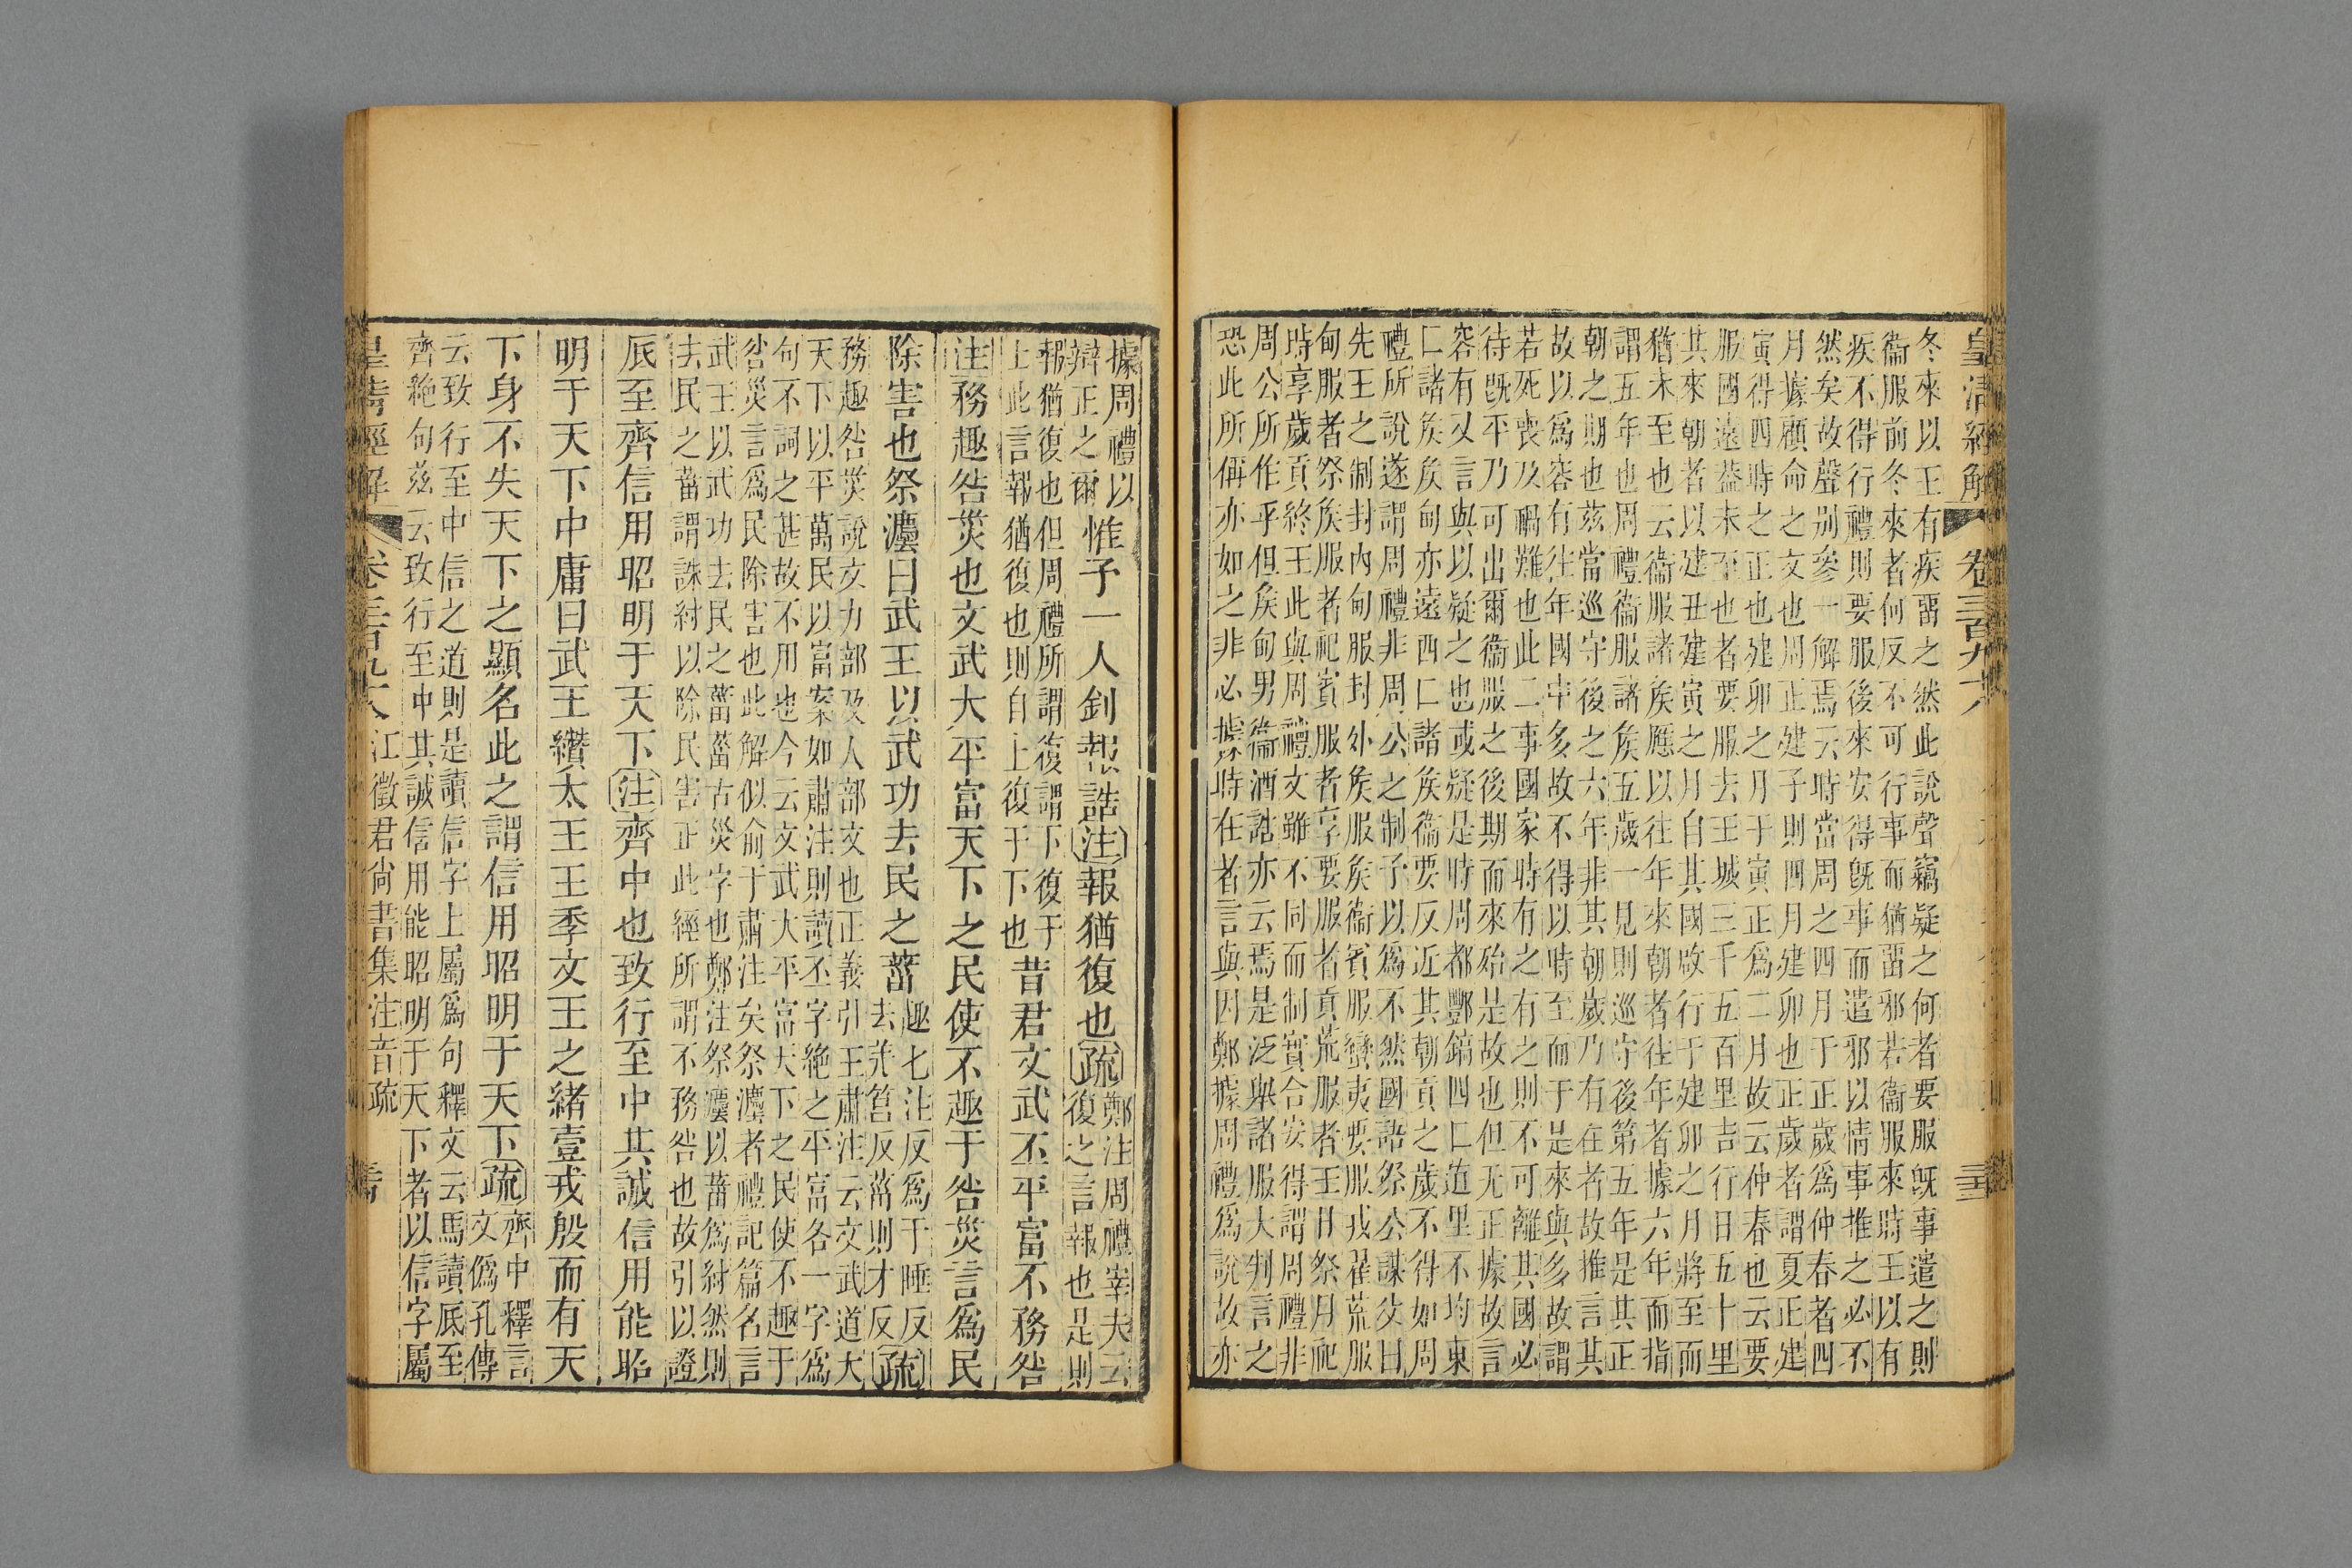 皇清經解 卷三百九十八 三
冬來以王有疾畱之然此說聲竊疑之何者要服旣事遣之則
衞服前冬來者何反不可行事而猶畱邪若衞服來時王以有
疾不得行禮則要服後來安得旣事而遣邪以情事推之必不
然矣故聲别參一解焉云時當周之四月于正歲爲仲春者四
月據顧命之文也周正建子則四月建卯也正歲者謂夏正建
寅得四時之正也建卯之月于寅正爲二月故云仲春也云要
服國遠葢未至也者要服去王城三千五百里吉行日五十里
其來朝者以建丑建寅之月自其國啟行于建卯之月將至而
猶未至也云衞服諸矦應以往年來朝者往年者據六年而指
謂五年也周禮衞服諸矦五歲一見則巡守後第五年是其正
朝之期也茲當巡守後之六年非其朝歲乃有在者故推言其
故以爲容有往年國中多故不得以時至而于是來與多故謂
若死喪及禍難也此二事國家時有之有之則不可離其國必
待旣平乃可出爾衞服之後期而來殆是故也但无正據故言
容有又言與以疑之也或疑是時周都酆鎬四匚迫里不均東
匚諸矦矦甸亦遠西匚諸矦衞要反近其朝貢之歲不得如周
禮所說遂謂周禮非周公之制予以爲不然國語祭公謀父曰
先王之制封內甸服封外矦服矦衞賓服蠻夷要服戎翟荒服
甸服者祭矦服者祀賓服者享要服者貢荒服者王日祭月祀
時享歲貢終王此與周禮文雖不同而制實合安得謂周禮非
周公所作乎但矦甸男衞酒誥亦云焉是泛與諸服大判言之
恐此所偁亦如之非必據時在者言與因鄭據周禮爲說故亦
據周禮以
辯正之爾惟予一人釗報誥注報猶復也疏鄭注周禮宰夫云
復之言報也是則
報猶復也但周禮所謂復謂下復于
上此言報猶復也則自上復于下也昔君文武丕平富不務咎
注務趣咎災也文武大平富天下之民使不趣于咎災言爲民
除害也祭灋曰武王以武功去民之菑趣七注反爲于睡反
去羌筥反菑則才反疏
務趣咎災說文力部及人部文也正義引王肅注云文武道大
天下以平萬民以富案如肅注則讀丕字絶之平富各一字爲
句不詞之甚故不用也今云文武大平富天下之民使不趣于
咎災言爲民除害也此解似俞于肅注矣祭灋者禮記篇名言
武王以武功去民之菑菑古災字也鄭注祭灋以菑爲紂然則
去民之菑謂誅紂以除民害正此經所謂不務咎也故引以證
厎至齊信用昭明于天下注齊中也致行至中其誠信用能昭
明于天下中庸曰武王纘太王王季文王之緒壹戎殷而有天
下身不失天下之顯名此之謂信用昭明于天下疏齊中釋言
文僞孔傳
云致行至中信之道則是讀信字上屬爲句釋文云馬讀厎至
齊絶句茲云致行至中其誠信用能昭明于天下者以信字屬
皇清經解 卷三百九十八 江徵君尙書集注音疏